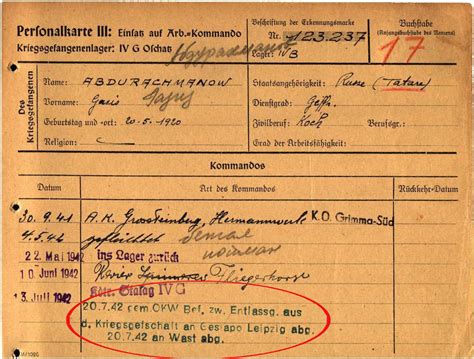 Personalkarte III: Einsatz auf Arb.-Kommando
Kriegsgefangenenlager: IV G Oschatz
Beschriftung der Erkennungsmarke
Nr. 123.237
Lager: IV B
Buchstabe
(Anfangsbuchstabe des Namens)
17
Des Kriegsgefangenen
Name: ABDURACHMANOW
Vorname:
Geburtstag und -ort: 20.5.1920
Religion:
Staatsangehörigkeit: Russe (Tatare)
Dienstgrad:
Zivilberuf: Koch Berufsgr.:
Grad der Arbeitsfähigkeit:
Kommandos
Datum Art des Kommandos Rückkehr-Datum
30.9.41 Hermannwerk K.O. Grimma-Süd
4.5.42
22 Mai 1942 ins Lager zurück
10 Juni 1942 Fliegerhorst
13 Juli 1942 Stalag IV G
20.7.42 gem.OKW Bef. zw. Entlassg. aus
d. Kriegsgefschaft an Gestapo Leipzig abg.
20.7.42 an Wast abg.